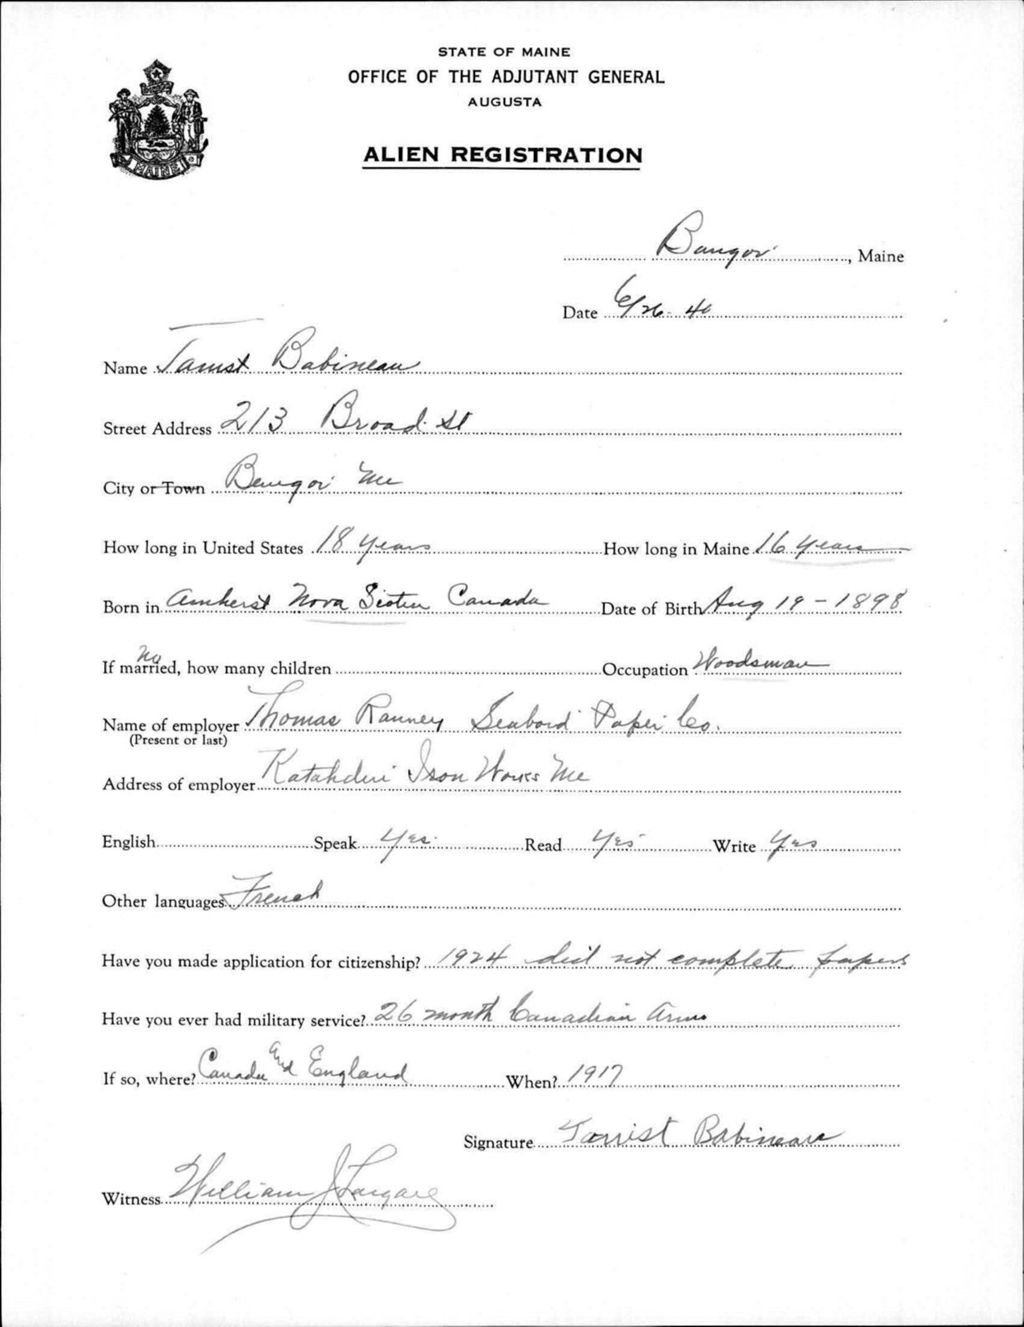 STATE OF MAINE
OFFICE OF THE ADJUTANT GENERAL
AUGUSTA
MAINE
ALIEN REGISTRATION
Bangor, Maine
Date 6/26-40
Name Babineau
Street Address 213 Broad St
City or Town Bangor Me
How long in United States 18 years How long in Maine 16 years
Born in Amherst Nova Scotia Canada Date of Birth Aug 19-1898
If married, how many children No Occupation Woodsman
Name of employer Thomas Ranney Seabord Paper Co.
(Present or last)
Address of employer Katahdin Iron Works Me
English Speak Yes Read Yes Write Yes
Other languages French
Have you made application for citizenship? 1924 did not complete papers
Have you ever had military service? 26 month Canadian
If so, where? Canada and England When? 1917
Signature Babineau
Witness William J